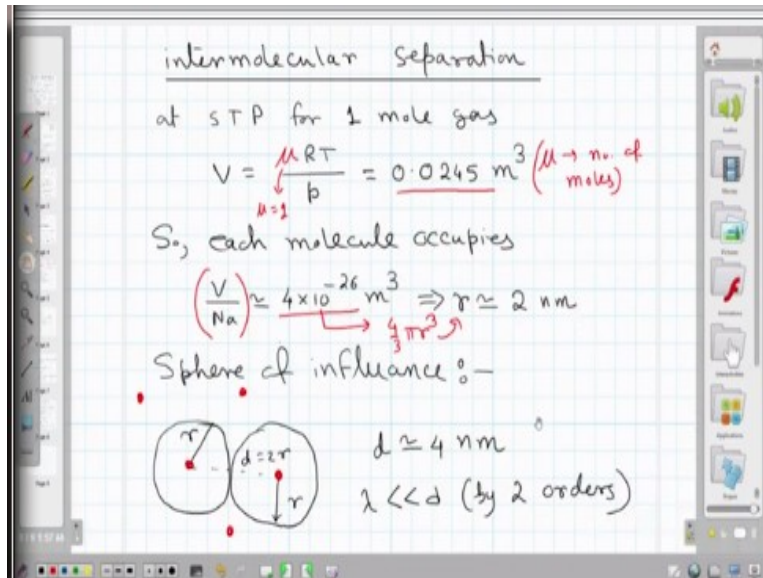 intermolecular separation
at STP for 1 mole gas
V = μRT / p = 0.0245 m³ (μ → no. of moles)
μ=1
So, each molecule occupies
(V/Na) ≃ 4×10⁻²⁶ m³ ⇒ r ≃ 2 nm
4/3 πr³
Sphere of influance :-
r
d=2r
r
d ≃ 4 nm
λ << d (by 2 orders)